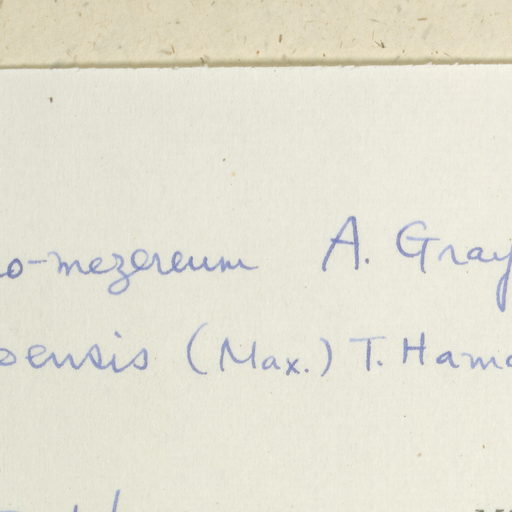 o-mezereum A. Gray
oensis (Max.) T. Hama